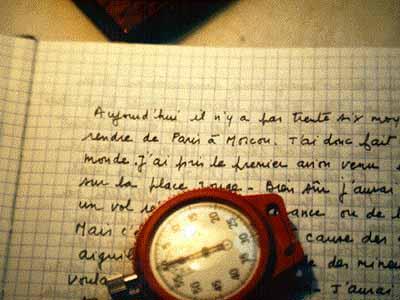 Aujourd'hui il n'y a pas trente six moy
rendre de Paris à Moscou. J'ai donc fait
monde. J'ai pris le premier avion venu
sur la place rouge. Bien sûr j'aurai
un vol ance ou de l
Mais c' cause des
aiguil de mines
voula J'aurai